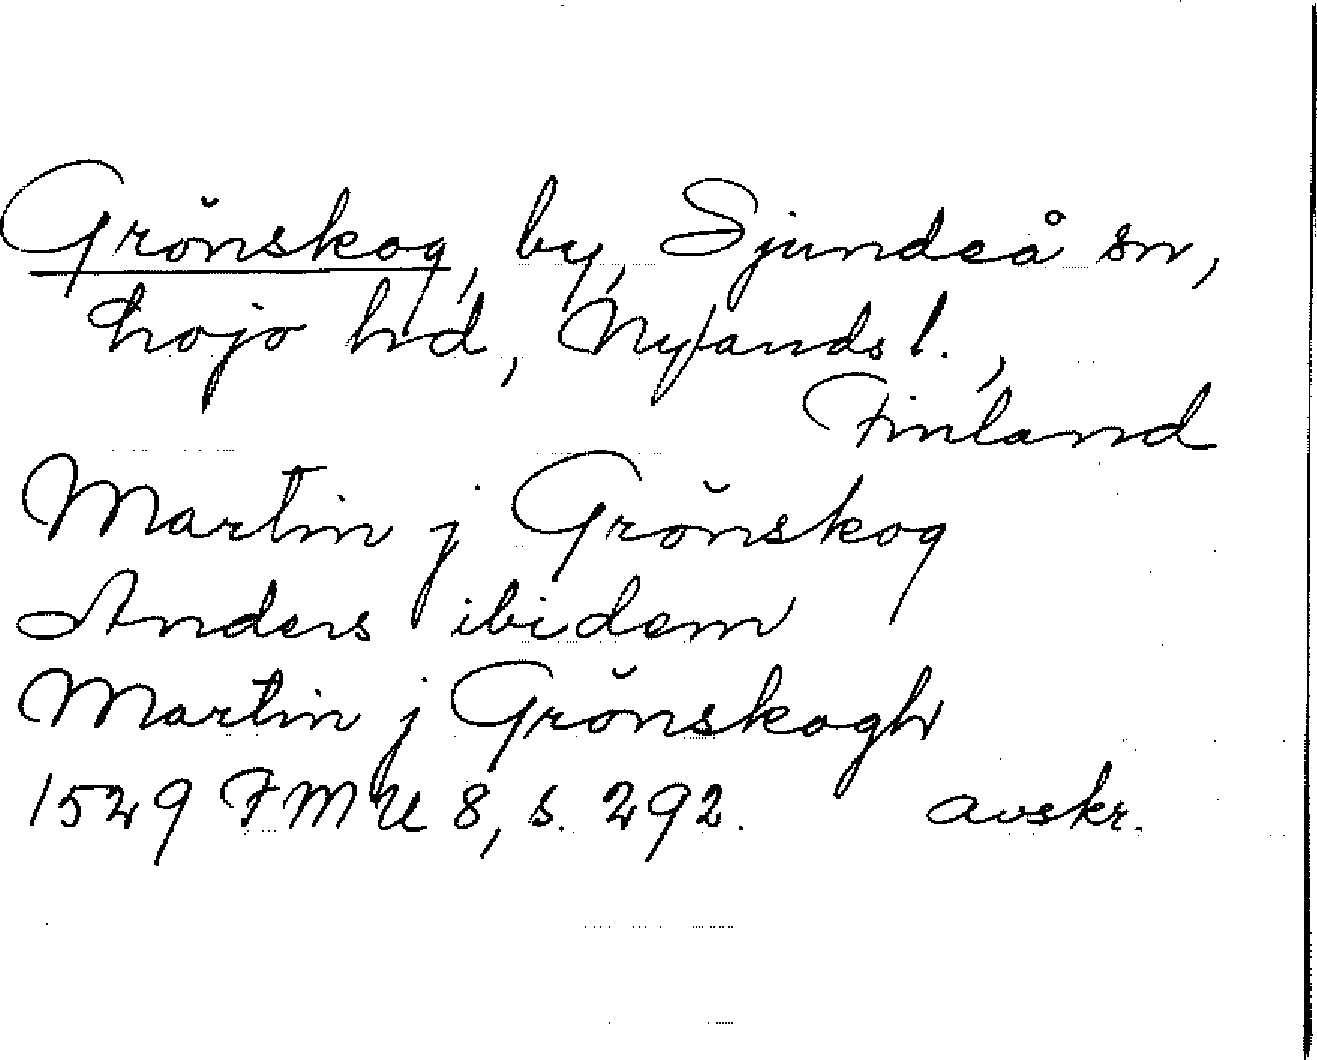 Grönskog, by, Sjundeå sn,
Lojo hd, Nylands l.,
Finland
Martin j Grönskog
Anders ibidem
Martin j Grönskogh
1529 FMU 8, s. 292. avskr.